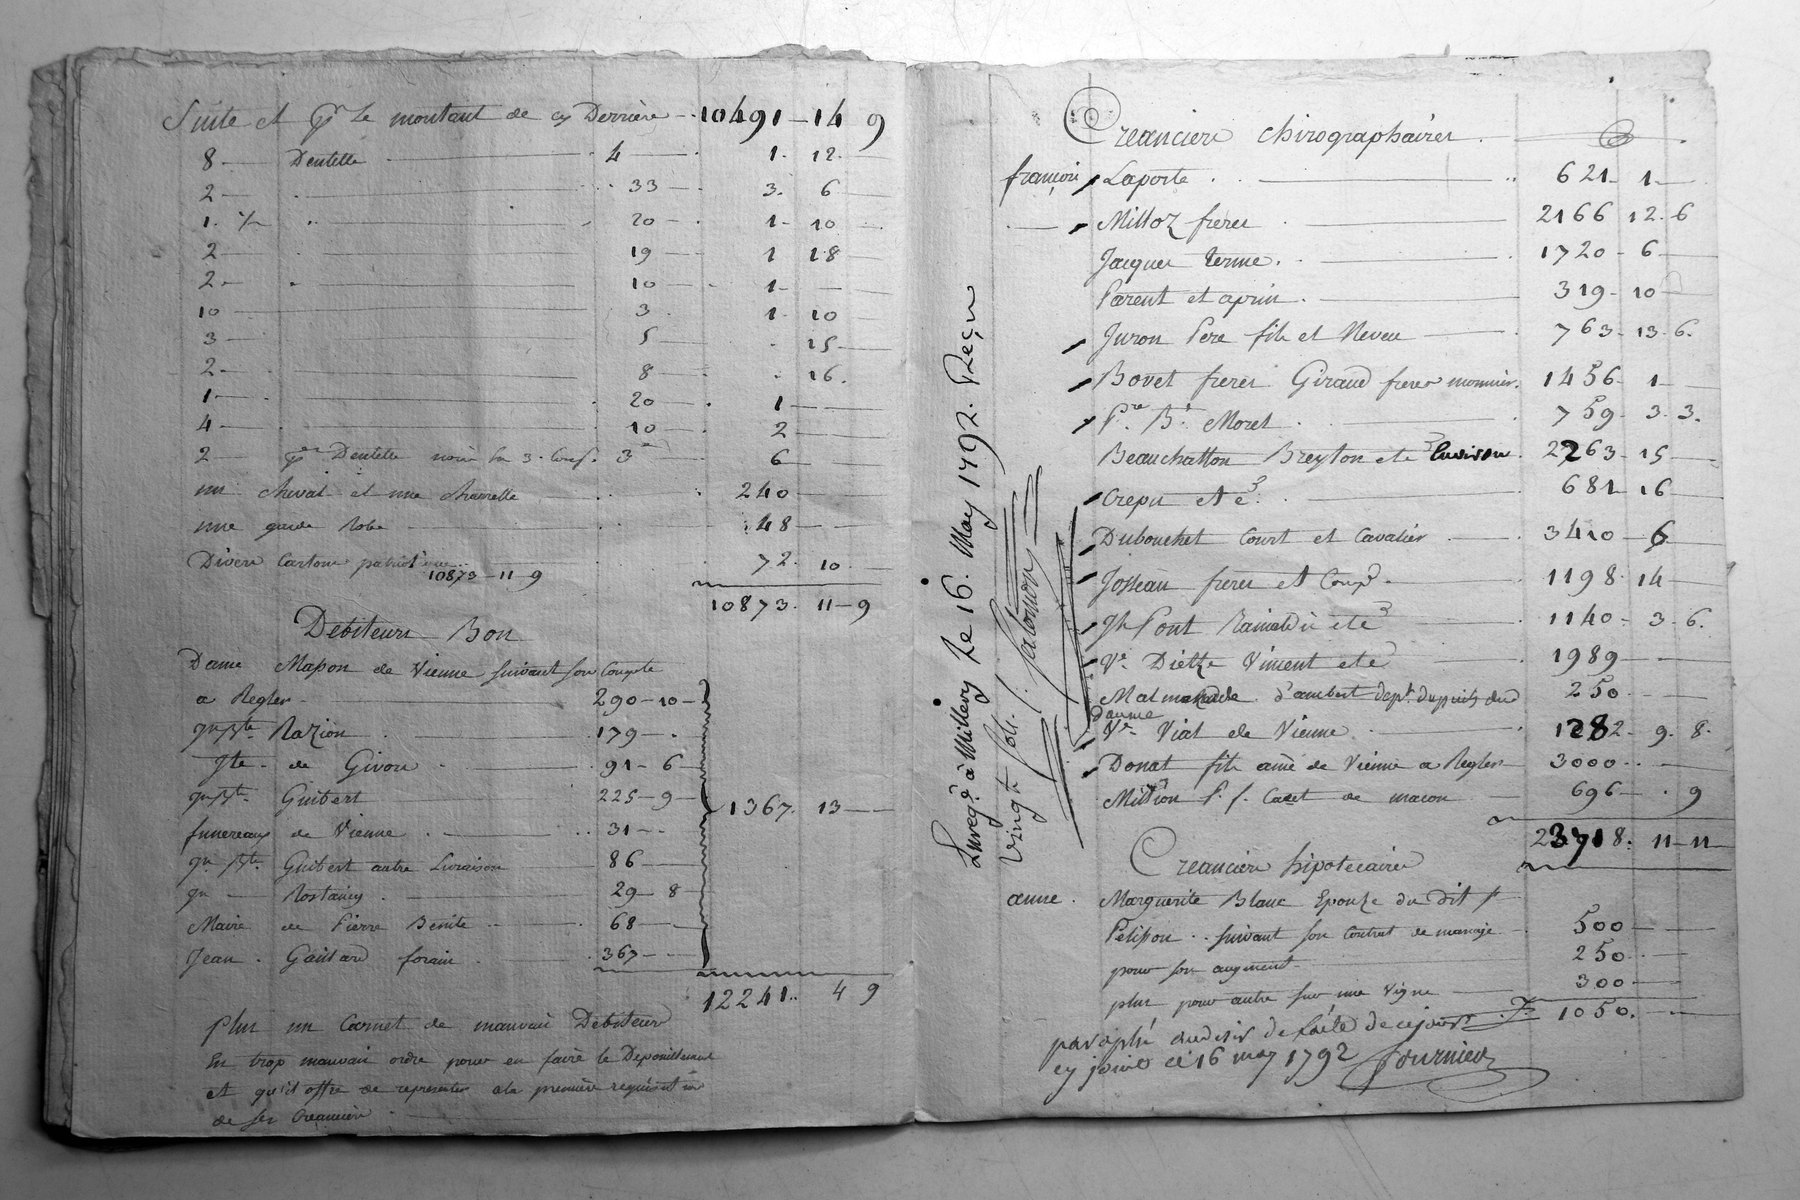 Suite et pr Le montant de cy Derrière 10491 - 14 9
8 Dentelle 4 1. 12.
2 33 3. 6
1. ½ 20 1. 10
2 19 1 18
2 10 1
10 3 1. 10
3 5 15
2 8 16.
1 20 1
4 10 2
2 Dentelle noire 3 6
un cheval et une charrette 240
une garde Robe 48
Divers Cartons 72. 10
10873 - 11 9
10873. 11 - 9
Debiteurs Bon
Dame Mapon de Vienne suivant son Compte
a Regler 290 - 10
Razion 179
de Givors 91 - 6
Guibert 225 - 9
1367. 13
funereaux de Vienne 31
Guibert autre Livraison 86
Rostaing 29 - 8
Maire de Pierre Benite 68
Jean Gaitard forain 367
12241.. 4 9
Plus un Carnet de mauvais Debiteurs
En trop mauvais ordre pour en faire le Depouillement
et qu'il offre de representer a la premiere requisition
de ses Creanciers
Enregé à Millery Le 16. May 1792. Reçu
vingt sols. Salomon
Creanciers chirographaires
françois Laporte 621 - 1
Milloz freres 2166 12. 6
Jacques terme 1720 - 6
Parent et aprin 319 - 10
Juron Pere fils et Neveu 763 - 13. 6.
Bovet freres Giraud freres monnier. 1456 - 1
Pre. Bt. Moret 759 - 3. 3.
Beauchatton Breyton et c 2263 - 15
Crepu et c 681 16
Dubouchet Court et Cavalier 3410 - 6
Josseau freres et Compe. 1198. 14
Jh Pont Rainaldi et c 1140 - 3. 6.
Ve. Dietze Vincent et c 1989
d'ambert 250
Daume
Ve. Viat de Vienne 1282 - 9. 8.
Donat fils ainé de Vienne a Regler 3000
Million P. f. Cadet de macon 696 - . 9
23718. 11 - 11
Creanciers hipotecaires
anne. Marguerite Blanc Epouse du Dit Sr
Pelisson suivant son Contrat de mariage 500
pour son augment 250
plus pour autre sur une vigne 300
1050.
paraphé au desir de l'acte de ce jour
cy joint ce 16 may 1792 Fournier